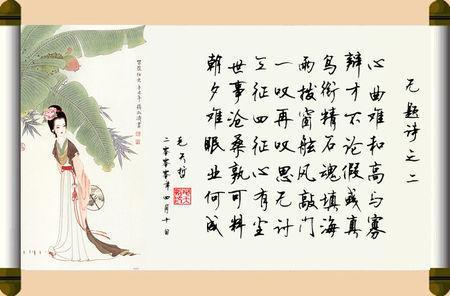 无题诗之二
心曲难和高与寡
辩才不论假或真
鸟衔精石魂填海
雨拨窗舷风敲门
一叹再叹思无计
征四征心有尘
世事沧桑孰可料
朝夕难眠业何成
二零零零年四月十日